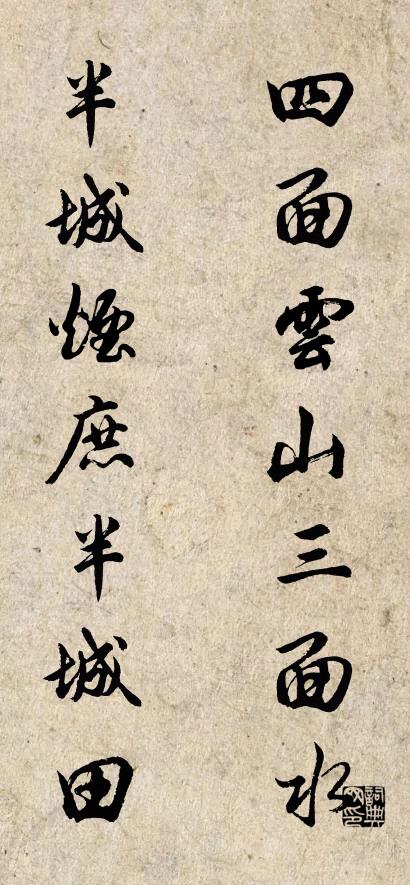 四面雲山三面水
半城煙庶半城田